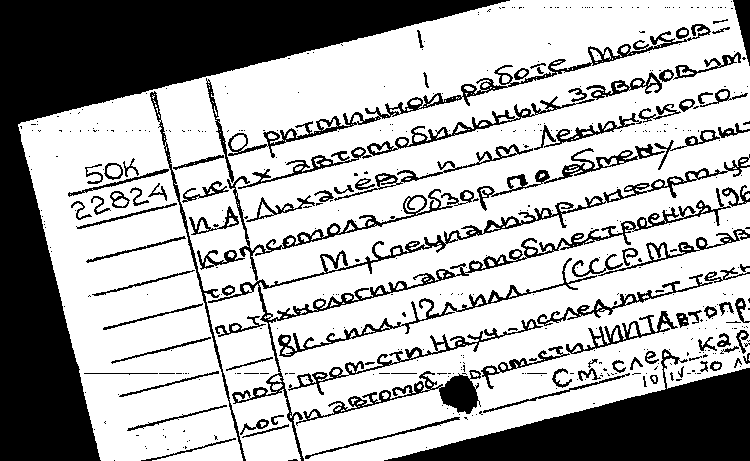 О ритмичной работе Москов=
50К
ских автомобильных заводов им.
22824
И.А.Лихачёва и им. Ленинского
комсомола. Обзор по обмену опы-
том. М., Специализир.информ.це
по технологии автомобилестроения, 196
81с.силл.; 12л.илл. (СССР. М-во ав
моб. пром-сти. Науч.-исслед.ин-т техн
логии автомоб. пром-сти. НИИТАвтопр
См. след. кар
10/IV-70